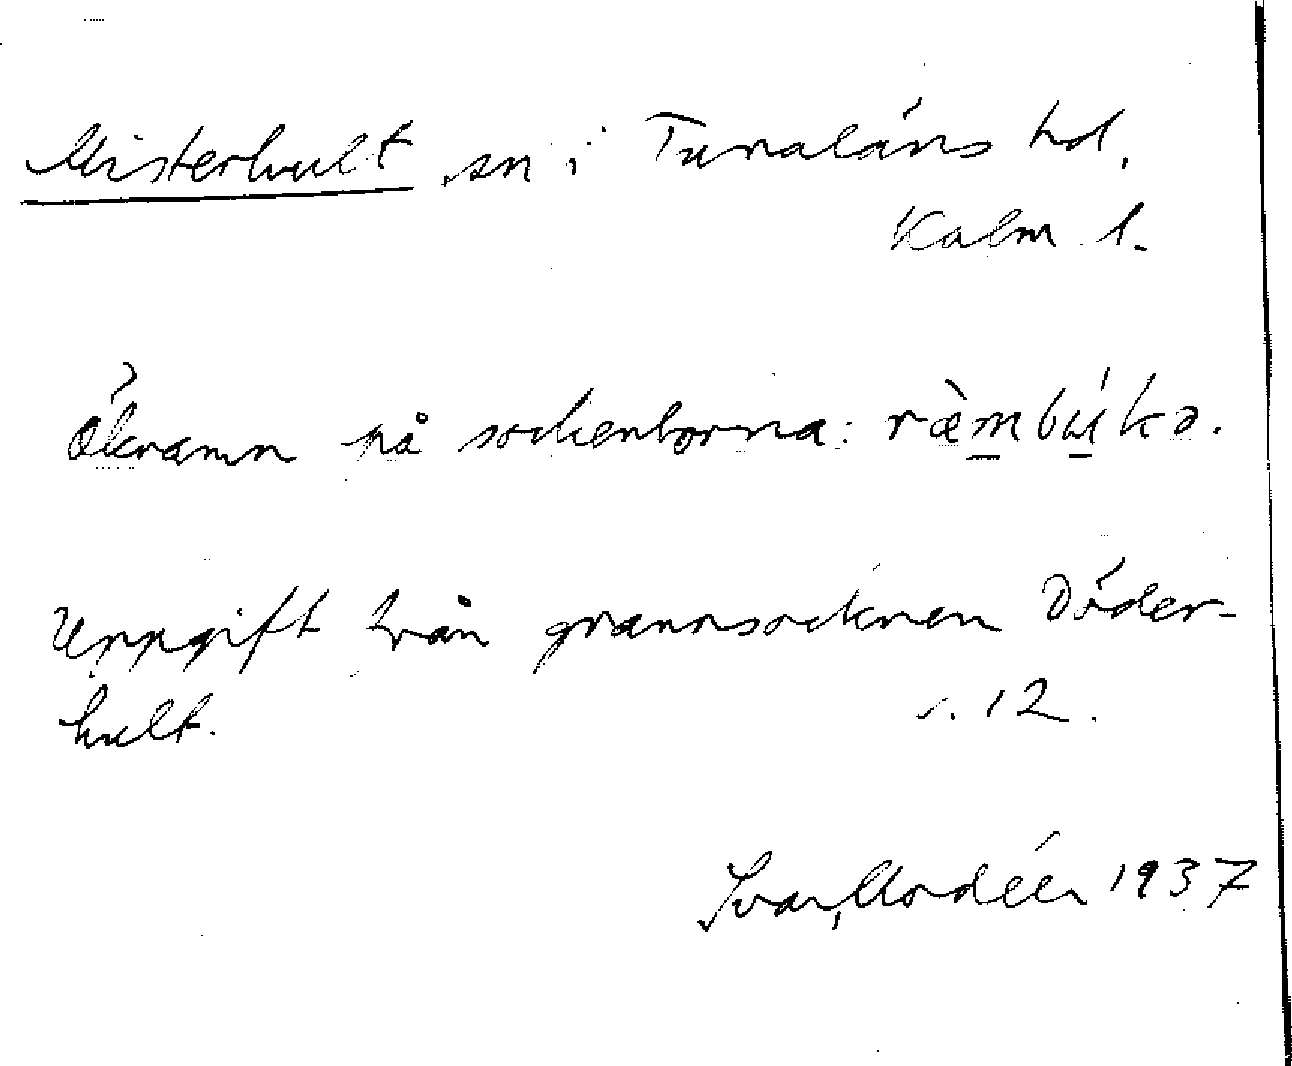 Misterhult sn i Tunaläns hd.
Kalm l.
Öknamn på sockenborna: ræ̀mbúkə.
Uppgift från grannsocknen Döder-
hult. s. 12.
Ivar Modéer 1937